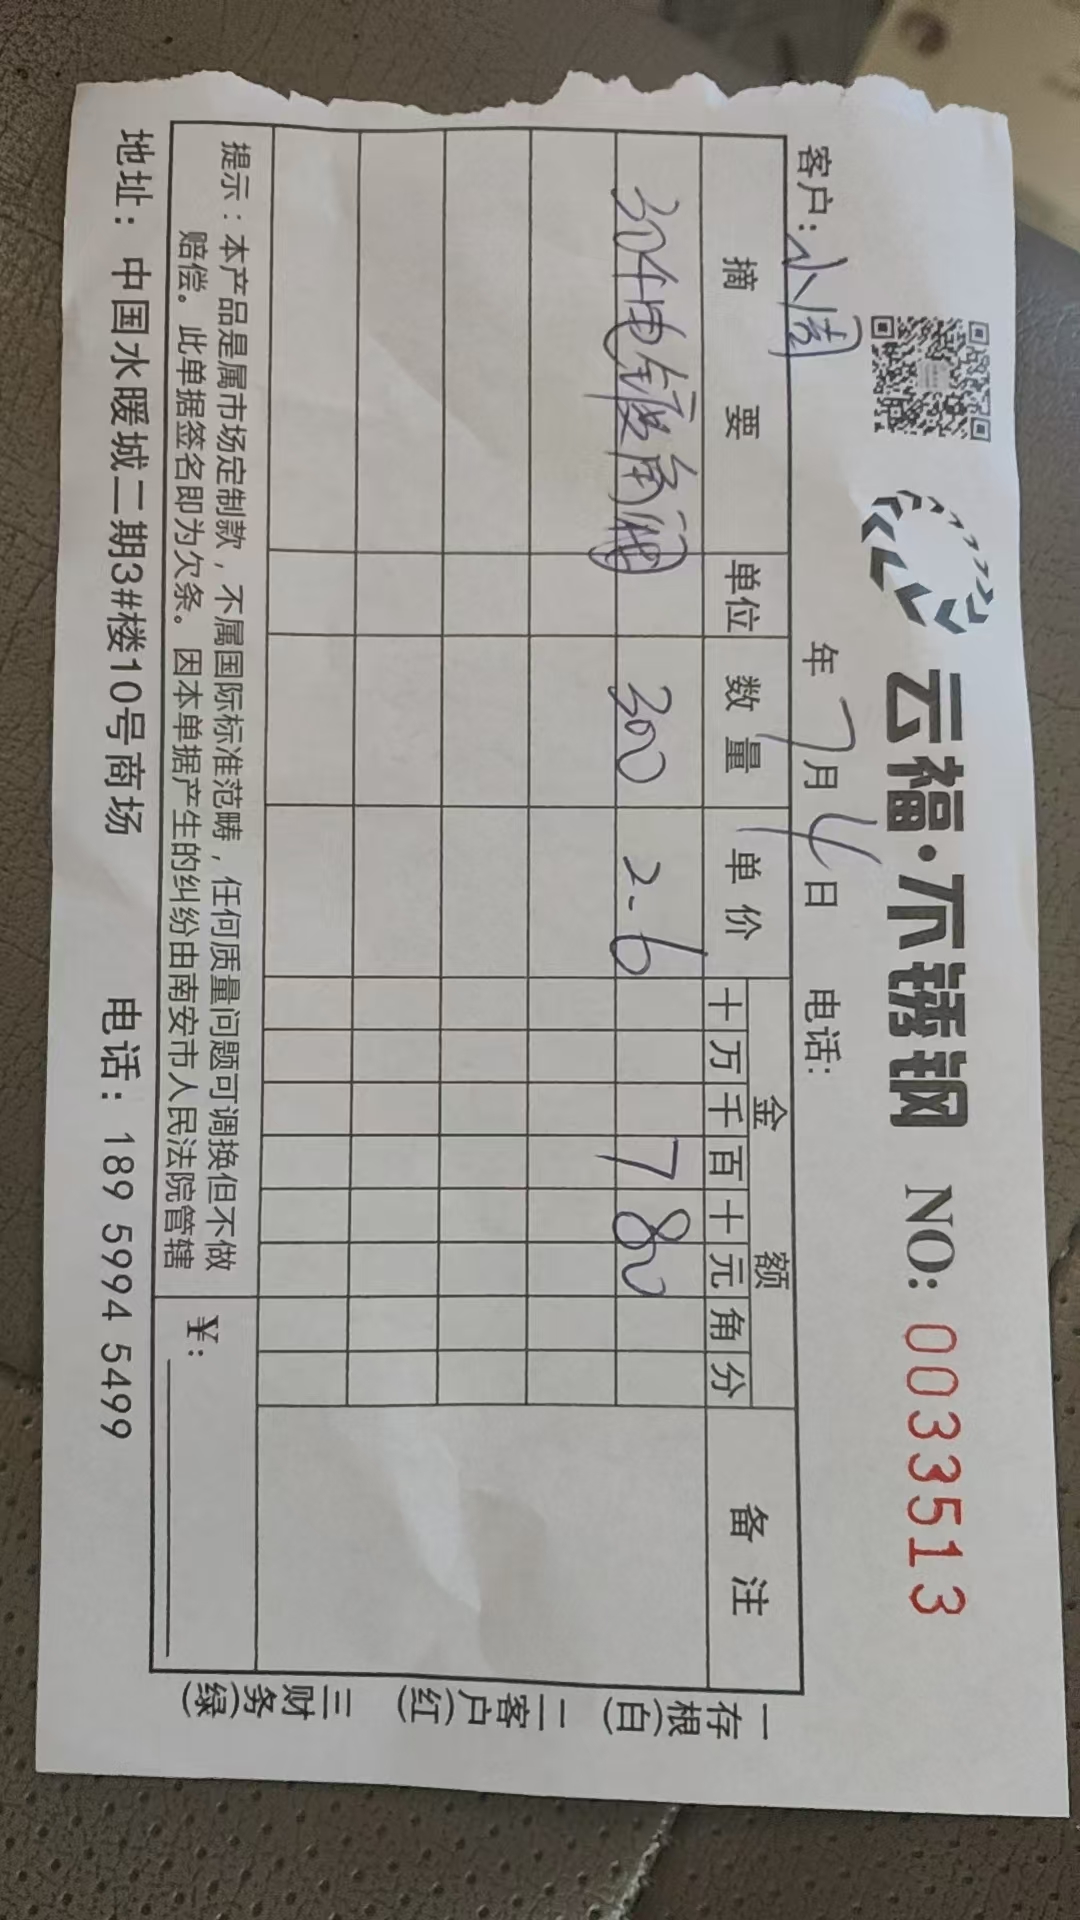 云福·不锈钢 NO: 0033513
客户: 小周 年 7 月 4 日 电话:
摘要 单位 数量 单价 金额 备注
十 万 千 百 十 元 角 分
304电镀角阀 300 2-6 780
提示：本产品是属市场定制款，不属国际标准范畴，任何质量问题可调换但不做
赔偿。此单据签名即为欠条。因本单据产生的纠纷由南安市人民法院管辖
¥:
地址：中国水暖城二期3#楼10号商场 电话：189 5994 5499
一存根(白) 二客户(红) 三财务(绿)